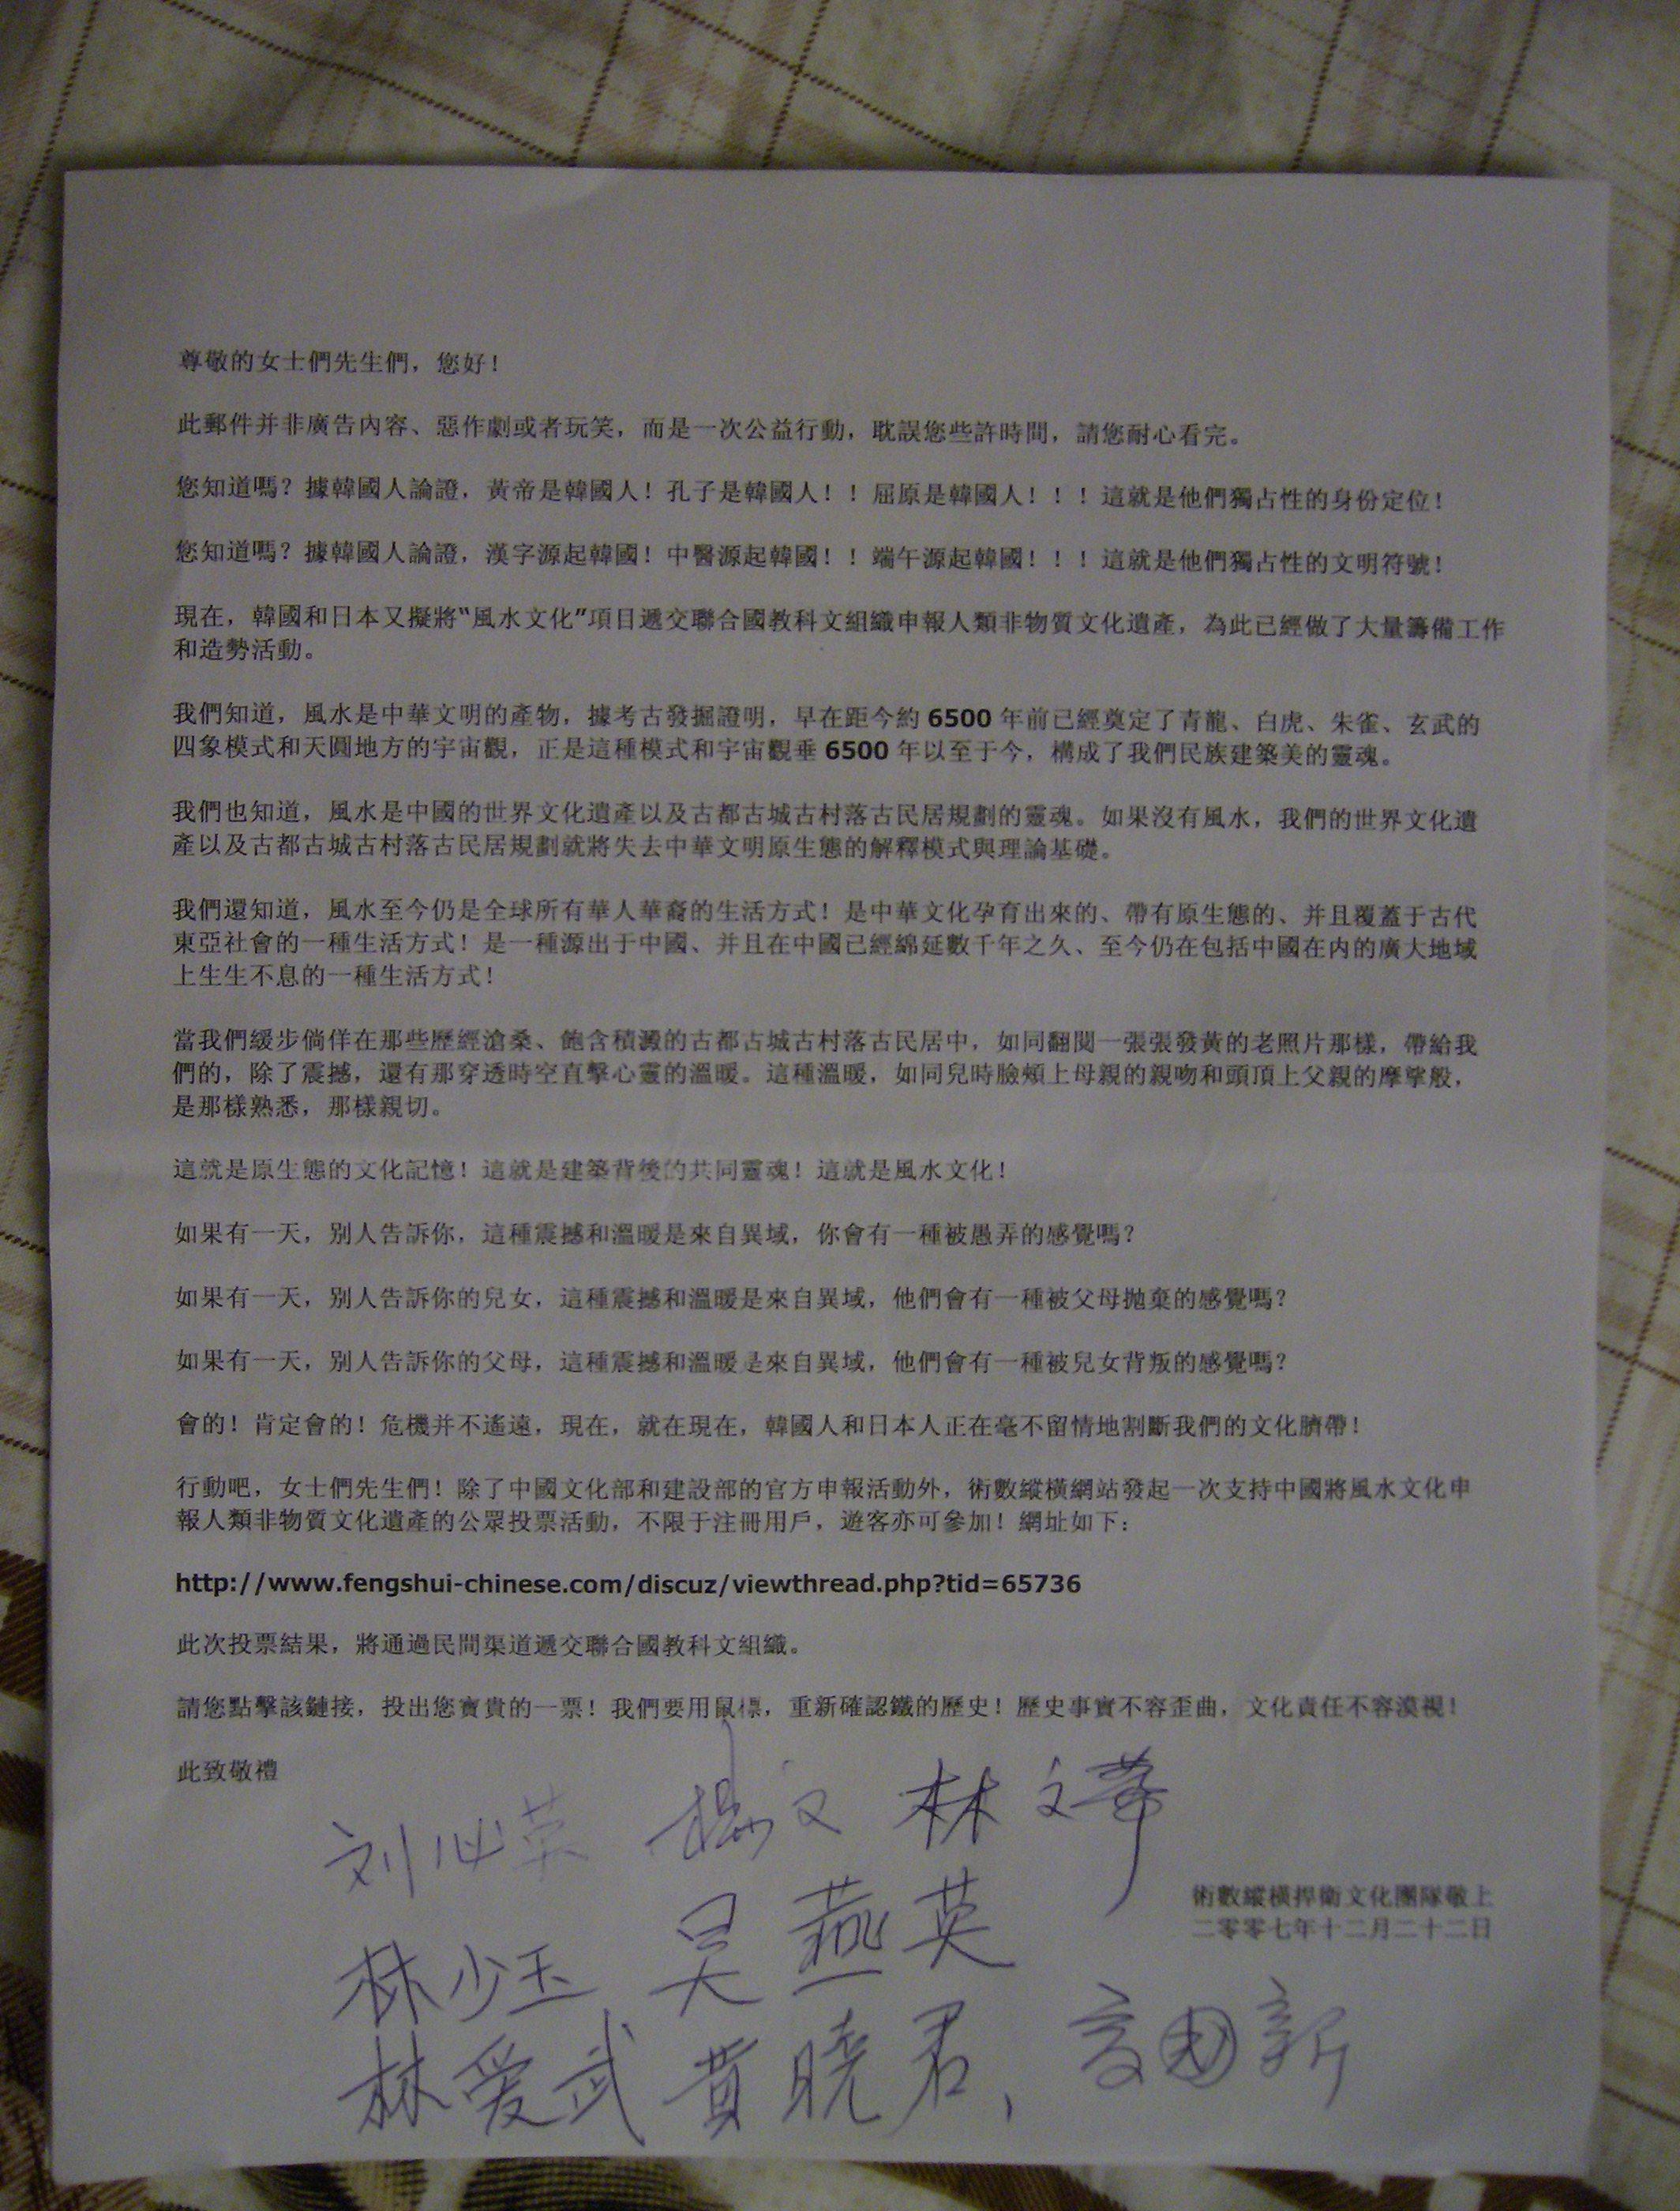 尊敬的女士們先生們，您好！
此郵件并非廣告內容、惡作劇或者玩笑，而是一次公益行動，耽誤您些許時間，請您耐心看完。
您知道嗎？據韓國人論證，黃帝是韓國人！孔子是韓國人！！屈原是韓國人！！！這就是他們獨占性的身份定位！
您知道嗎？據韓國人論證，漢字源起韓國！中醫源起韓國！！端午源起韓國！！！這就是他們獨占性的文明符號！
現在，韓國和日本又擬將“風水文化”項目遞交聯合國教科文組織申報人類非物質文化遺產，為此已經做了大量籌備工作
和造勢活動。
我們知道，風水是中華文明的產物，據考古發掘證明，早在距今約 6500 年前已經奠定了青龍、白虎、朱雀、玄武的
四象模式和天圓地方的宇宙觀，正是這種模式和宇宙觀垂 6500 年以至于今，構成了我們民族建築美的靈魂。
我們也知道，風水是中國的世界文化遺產以及古都古城古村落古民居規劃的靈魂。如果沒有風水，我們的世界文化遺
產以及古都古城古村落古民居規劃就將失去中華文明原生態的解釋模式與理論基礎。
我們還知道，風水至今仍是全球所有華人華裔的生活方式！是中華文化孕育出來的、帶有原生態的、并且覆蓋于古代
東亞社會的一種生活方式！是一種源出于中國、并且在中國已經綿延數千年之久、至今仍在包括中國在内的廣大地域
上生生不息的一種生活方式！
當我們緩步倘佯在那些歷經滄桑、飽含積澱的古都古城古村落古民居中，如同翻閱一張張發黃的老照片那樣，帶給我
們的，除了震撼，還有那穿透時空直擊心靈的溫暖。這種溫暖，如同兒時臉頰上母親的親吻和頭頂上父親的摩挲般，
是那樣熟悉，那樣親切。
這就是原生態的文化記憶！這就是建築背後的共同靈魂！這就是風水文化！
如果有一天，別人告訴你，這種震撼和溫暖是來自異域，你會有一種被愚弄的感覺嗎？
如果有一天，別人告訴你的兒女，這種震撼和溫暖是來自異域，他們會有一種被父母拋棄的感覺嗎？
如果有一天，別人告訴你的父母，這種震撼和溫暖是來自異域，他們會有一種被兒女背叛的感覺嗎？
會的！肯定會的！危機并不遙遠，現在，就在現在，韓國人和日本人正在毫不留情地割斷我們的文化臍帶！
行動吧，女士們先生們！除了中國文化部和建設部的官方申報活動外，術數縱橫網站發起一次支持中國將風水文化申
報人類非物質文化遺產的公眾投票活動，不限于注冊用戶，遊客亦可參加！網址如下：
http://www.fengshui-chinese.com/discuz/viewthread.php?tid=65736
此次投票結果，將通過民間渠道遞交聯合國教科文組織。
請您點擊該鏈接，投出您寶貴的一票！我們要用鼠標，重新確認鐵的歷史！歷史事實不容歪曲，文化責任不容漠視！
此致敬禮
刘必英 楊文 林文華
術數縱橫捍衛文化團隊敬上
二零零七年十二月二十二日
林少玉 吴燕英
林爱武 黄曉君、 高国新